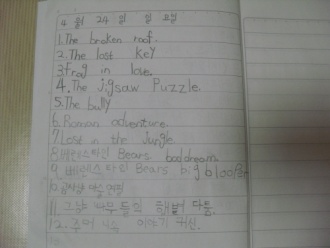 4 월 24 일 일 요일
1. The broken roof.
2. The lost key
3. frog in love.
4. The jigsaw Puzzle.
5. The bully
6. Roman adventure.
7. Lost in the jungle.
8. 베렌스타인 Bears. bad dream.
9. 베렌스타인 Bears big
10.
11. 그냥 다툼
12. 이야기 귀신.